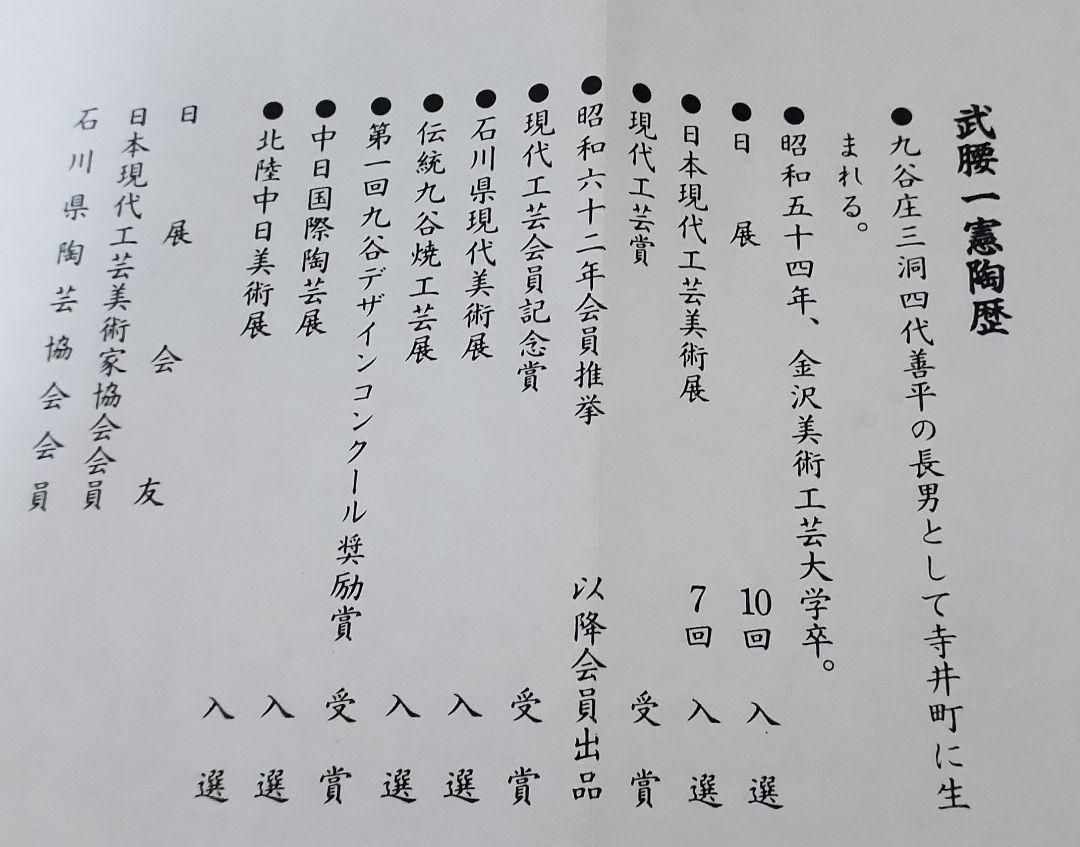 武腰一憲陶歴
●九谷庄三洞四代善平の長男として寺井町に生
まれる。
●昭和五十四年、金沢美術工芸大学卒。
●日展 10回 入選
●日本現代工芸美術展 7回 入選
●現代工芸賞 受賞
●昭和六十二年会員推挙 以降会員出品
●現代工芸会員記念賞 受賞
●石川県現代美術展 入選
●伝統九谷焼工芸展 入選
●第一回九谷デザインコンクール奨励賞 受賞
●中日国際陶芸展 入選
●北陸中日美術展 入選
日展会友
日本現代工芸美術家協会会員
石川県陶芸協会会員